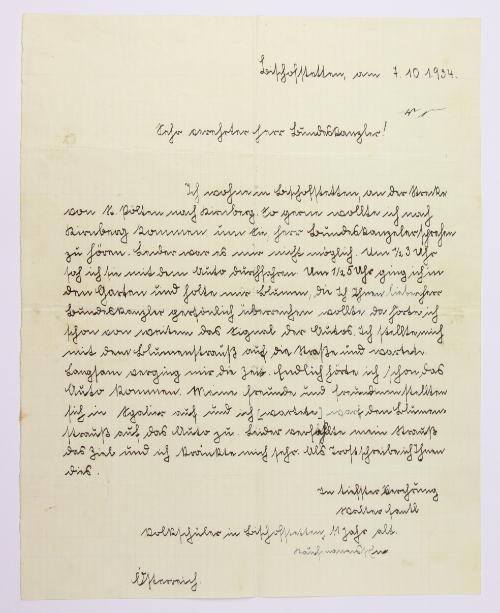 Bischofstetten, am 7.10.1934.
Sehr verehrter Herr Bundeskanzler!
Ich wohne in Bischofstetten, an der Strecke
von St. Pölten nach Kirnberg. So gerne wollte ich nach
Kirnberg kommen um Sie, Herr Bundeskanzeler sprechen
zu hören. Leider war es mir nicht möglich. Um ½ 3 Uhr
sah ich sie mit dem Auto durchfahren. Um ½ 5 Uhr ging ich in
den Garten und holte mir Blumen, die ich Ihnen, lieber Herr
Bundeskanzler persönlich überreichen wollte da hörte ich
schon von weitem das Signal der Autos. Ich stellte mich
mit dem Blumenstrauß auf die Straße und wartete.
Langsam verging mir die Zeit. Endlich hörte ich schon das
Auto kommen. Meine Freunde und Freundinnen stellten
sich in Spalier auf und ich [wartete] warf den Blumen-
strauß auf das Auto zu. Leider verfehlte mein Strauß
das Ziel und ich kränkte mich sehr. Als Trost schreibe ich Ihnen
dies.
In tiefster Verehrung
Walter
Volksschüler in Bischofstetten, 11 Jahr alt.
Kaufmannssohn
Österreich.